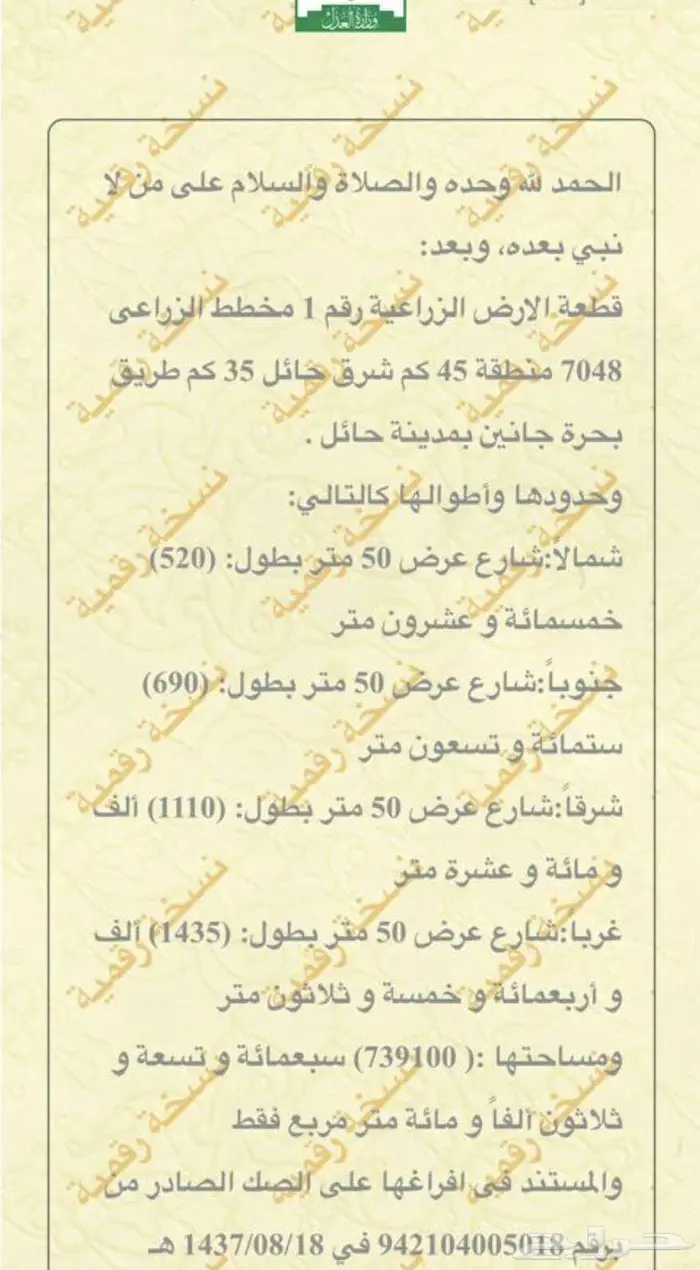 وزارة العدل
الحمد لله وحده والصلاة والسلام على من لا
نبي بعده، وبعد:
قطعة الارض الزراعية رقم 1 مخطط الزراعى
7048 منطقة 45 كم شرق حائل 35 كم طريق
بحرة جانين بمدينة حائل .
وحدودها وأطوالها كالتالي:
شمالاً:شارع عرض 50 متر بطول: (520)
خمسمائة و عشرون متر
جنوباً:شارع عرض 50 متر بطول: (690)
ستمائة و تسعون متر
شرقاً:شارع عرض 50 متر بطول: (1110) ألف
و مائة و عشرة متر
غرباً:شارع عرض 50 متر بطول: (1435) ألف
و أربعمائة و خمسة و ثلاثون متر
ومساحتها :( 739100) سبعمائة و تسعة و
ثلاثون ألفاً و مائة متر مربع فقط
والمستند في افراغها على الصك الصادر من
برقم 942104005018 في 1437/08/18 هـ
نسخة رقمية
حراج